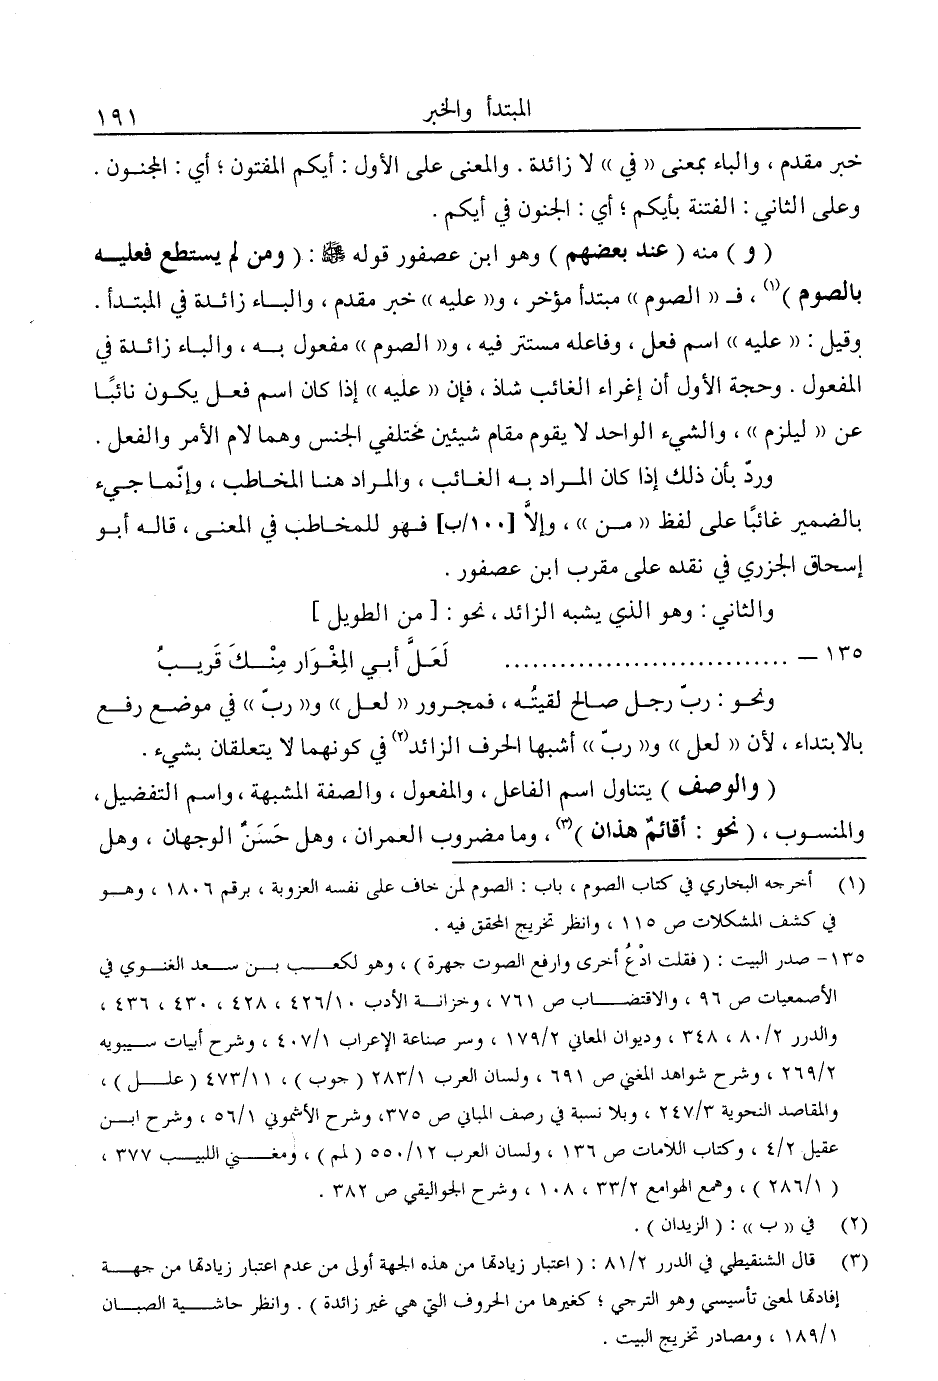 المبتدأ والخبر ١٩١
خبر مقدم ، والباء بمعنى « في » لا زائدة . والمعنى على الأول : أيكم المفتون ؛ أي : المجنون .
وعلى الثاني : الفتنة بأيكم ؛ أي : الجنون في أيكم .
( و ) منه ( عند بعضهم ) وهو ابن عصفور قوله ﷺ : ( ومن لم يستطع فعليه
بالصوم )(١) ، فـ « الصوم » مبتدأ مؤخر ، و« عليه » خبر مقدم ، والباء زائدة في المبتدأ .
وقيل : « عليه » اسم فعل ، وفاعله مستتر فيه ، و« الصوم » مفعول به ، والباء زائدة في
المفعول . وحجة الأول أن إغراء الغائب شاذ ، فإن « عليه » إذا كان اسم فعل يكون نائبًا
عن « ليلزم » ، والشيء الواحد لا يقوم مقام شيئين مختلفي الجنس وهما لام الأمر والفعل .
وردّ بأن ذلك إذا كان المراد به الغائب ، والمراد هنا المخاطب ، وإنّما جيء
بالضمير غائبًا على لفظ « من » ، وإلاَّ [١٠٠/ب] فهو للمخاطب في المعنى ، قاله أبو
إسحاق الجزري في نقده على مقرب ابن عصفور .
والثاني : وهو الذي يشبه الزائد ، نحو : [ من الطويل ]
١٣٥ – .............................. لَعَلَّ أبي المِغْوَار مِنْكَ قَرِيبُ
ونحو : ربّ رجل صالح لقيتُه ، فمجرور « لعل » و« ربّ » في موضع رفع
بالابتداء ، لأن « لعل » و« ربّ » أشبها الحرف الزائد(٢) في كونهما لا يتعلقان بشيء .
( والوصف ) يتناول اسم الفاعل ، والمفعول ، والصفة المشبهة ، واسم التفضيل ،
والمنسوب ، ( نحو : أقائمٌ هذان )(٣) ، وما مضروب العمران ، وهل حَسَنٌ الوجهان ، وهل
(١) أخرجه البخاري في كتاب الصوم ، باب : الصوم لمن خاف على نفسه العزوبة ، برقم ١٨٠٦ ، وهو
في كشف المشكلات ص ١١٥ ، وانظر تخريج المحقق فيه .
١٣٥- صدر البيت : ( فقلت ادْعُ أخرى وارفع الصوت جهرة ) ، وهو لكعب بن سعد الغنوي في
الأصمعيات ص ٩٦ ، والاقتضاب ص ٧٦١ ، وخزانة الأدب ٤٢٦/١٠ ، ٤٢٨ ، ٤٣٠ ، ٤٣٦ ،
والدرر ٨٠/٢ ، ٣٤٨ ، وديوان المعاني ١٧٩/٢ ، وسر صناعة الإعراب ٤٠٧/١ ، وشرح أبيات سيبويه
٢٦٩/٢ ، وشرح شواهد المغني ص ٦٩١ ، ولسان العرب ٢٨٣/١ ( جوب ) ، ٤٧٣/١١ ( علل ) ،
والمقاصد النحوية ٢٤٧/٣ ، وبلا نسبة في رصف المباني ص ٣٧٥، وشرح الأشموني ٥٦/١ ، وشرح ابن
عقيل ٤/٢ ، وكتاب اللامات ص ١٣٦ ، ولسان العرب ٥٥٠/١٢ ( لمم ) ، ومغني اللبيب ٣٧٧ ،
( ٢٨٦/١ ) ، وهمع الهوامع ٣٣/٢ ، ١٠٨ ، وشرح الجواليقي ص ٣٨٢ .
(٢) في « ب » : ( الزيدان ) .
(٣) قال الشنقيطي في الدرر ٨١/٢ : ( اعتبار زيادتها من هذه الجهة أولى من عدم اعتبار زيادتها من جهة
إفادتها لمعنى تأسيسي وهو الترجي ؛ كغيرها من الحروف التي هي غير زائدة ) . وانظر حاشية الصبان
١٨٩/١ ، ومصادر تخريج البيت .